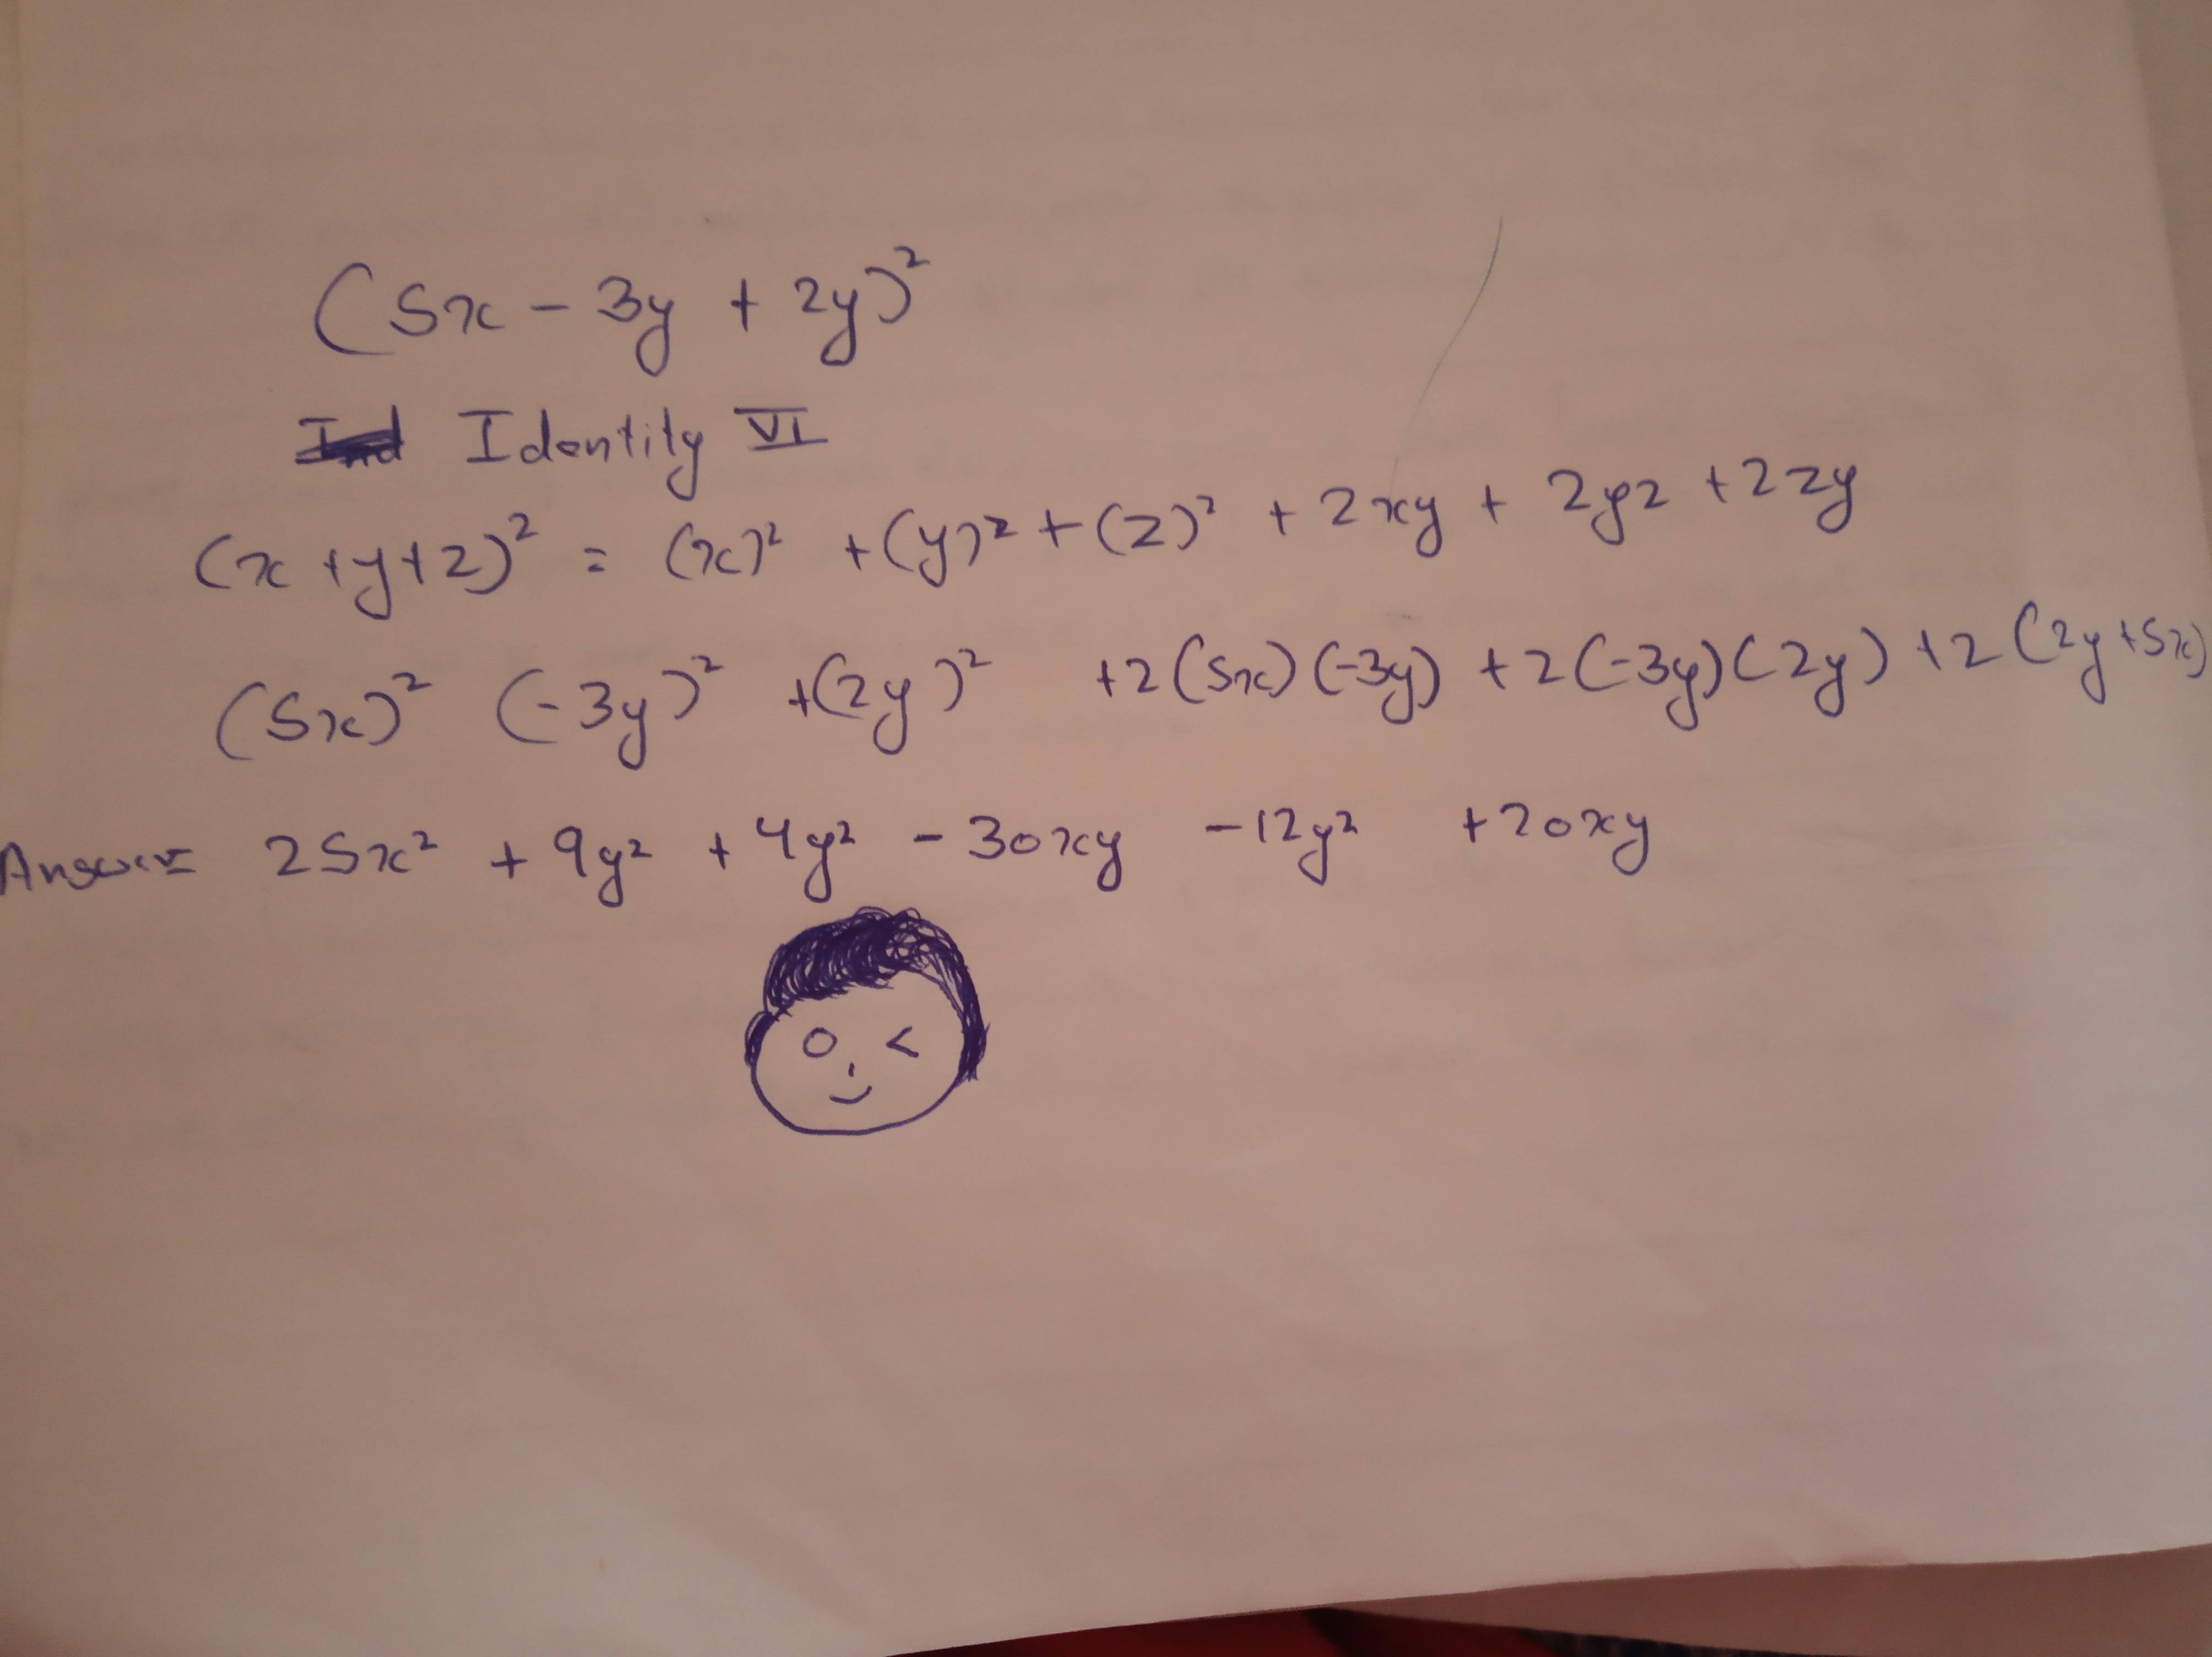 (5x - 3y + 2y)²
Ind Identity VI
(x+y+z)² = (x)² + (y)² + (z)² + 2xy + 2yz + 2zy
(5x)² (-3y)² +(2y)² +2(5x)(-3y) +2(-3y)(2y) +2(2y+5x)
Answer= 25x² + 9y² + 4y² - 30xy - 12y² + 20xy